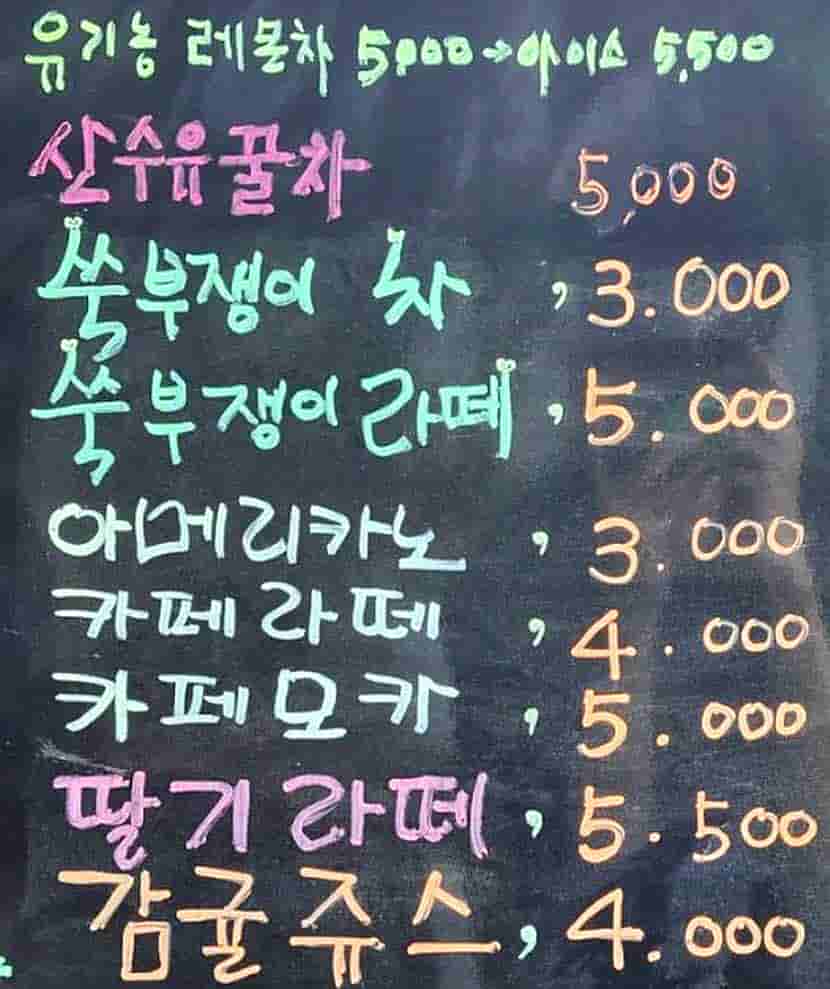 유기농 레몬차 5,000→아이스 5,500
산수유꿀차 5,000
쑥부쟁이 차 , 3.000
쑥부쟁이 라떼 , 5.000
아메리카노 , 3.000
카페라떼 , 4.000
카페모카 , 5.000
딸기라떼 , 5.500
감귤쥬스 , 4.000